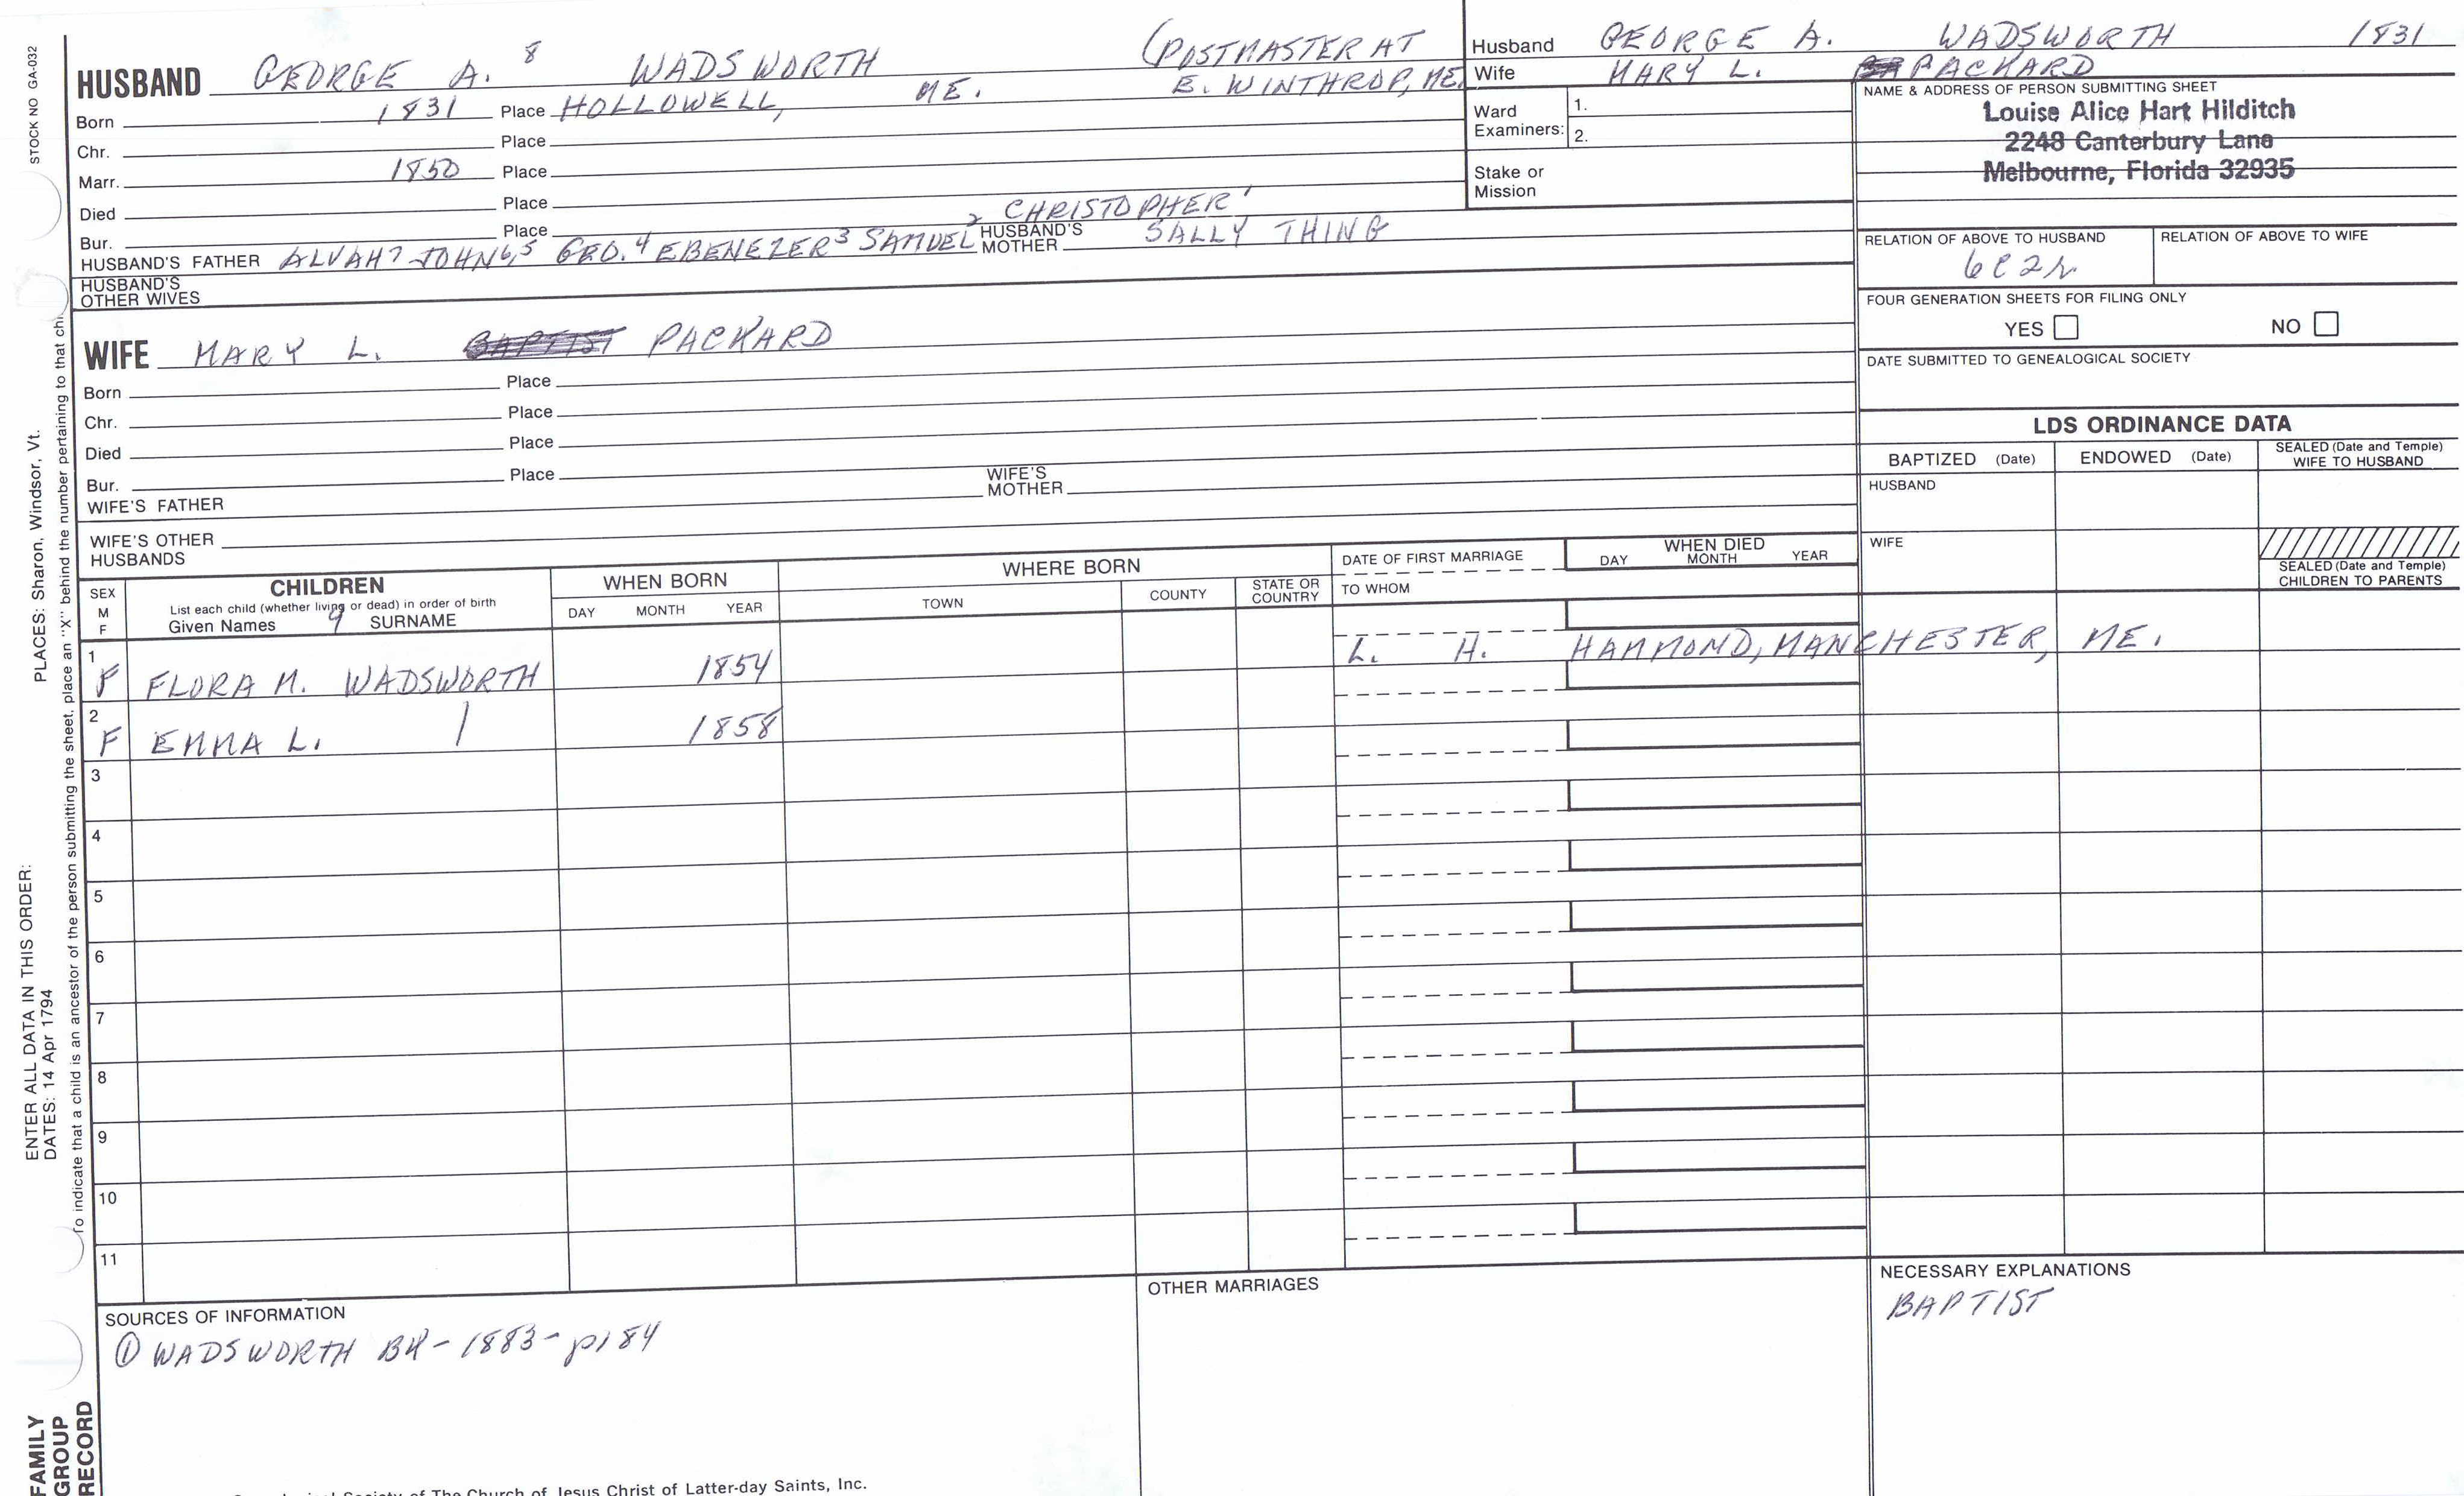 STOCK NO GA-032
PLACES: Sharon, Windsor, Vt.
ENTER ALL DATA IN THIS ORDER:
DATES: 14 Apr 1794
To indicate that a child is an ancestor of the person submitting the sheet, place an "X" behind the number pertaining to that chi
FAMILY
GROUP
RECORD
HUSBAND GEORGE A. 8 WADSWORTH (POSTMASTER AT
E. WINTHROP, ME.
Born 1831 Place HOLLOWELL, ME.
Chr. Place
Marr. 1850 Place
Died Place
Bur. Place
2 CHRISTOPHER 1
HUSBAND'S FATHER ALVAH 7 JOHN 6,5 GEO. 4 EBENEZER 3 SAMUEL HUSBAND'S MOTHER SALLY THING
HUSBAND'S
OTHER WIVES
WIFE MARY L. BAPTIST PACKARD
Born Place
Chr. Place
Died Place
Bur. Place
WIFE'S FATHER WIFE'S MOTHER
WIFE'S OTHER
HUSBANDS
Husband GEORGE A. WADSWORTH 1831
Wife MARY L. PACKARD
Ward
Examiners: 1.
2.
Stake or
Mission
NAME & ADDRESS OF PERSON SUBMITTING SHEET
Louise Alice Hart Hilditch
2248 Canterbury Lane
Melbourne, Florida 32935
RELATION OF ABOVE TO HUSBAND RELATION OF ABOVE TO WIFE
6C2R
FOUR GENERATION SHEETS FOR FILING ONLY
YES NO
DATE SUBMITTED TO GENEALOGICAL SOCIETY
LDS ORDINANCE DATA
BAPTIZED (Date) ENDOWED (Date) SEALED (Date and Temple)
WIFE TO HUSBAND
HUSBAND
WIFE
SEALED (Date and Temple)
CHILDREN TO PARENTS
SEX
M
F
CHILDREN
List each child (whether living or dead) in order of birth
Given Names 9 SURNAME
WHEN BORN
DAY MONTH YEAR
WHERE BORN
TOWN COUNTY STATE OR
COUNTRY
DATE OF FIRST MARRIAGE
TO WHOM
WHEN DIED
DAY MONTH YEAR
1
F FLORA M. WADSWORTH 1854 L. H. HAMMOND, MANCHESTER, ME.
2
F EMMA L. 1858
3
4
5
6
7
8
9
10
11
SOURCES OF INFORMATION
① WADSWORTH BK - 1883 - p184
OTHER MARRIAGES
NECESSARY EXPLANATIONS
BAPTIST
Society of The Church of Jesus Christ of Latter-day Saints, Inc.